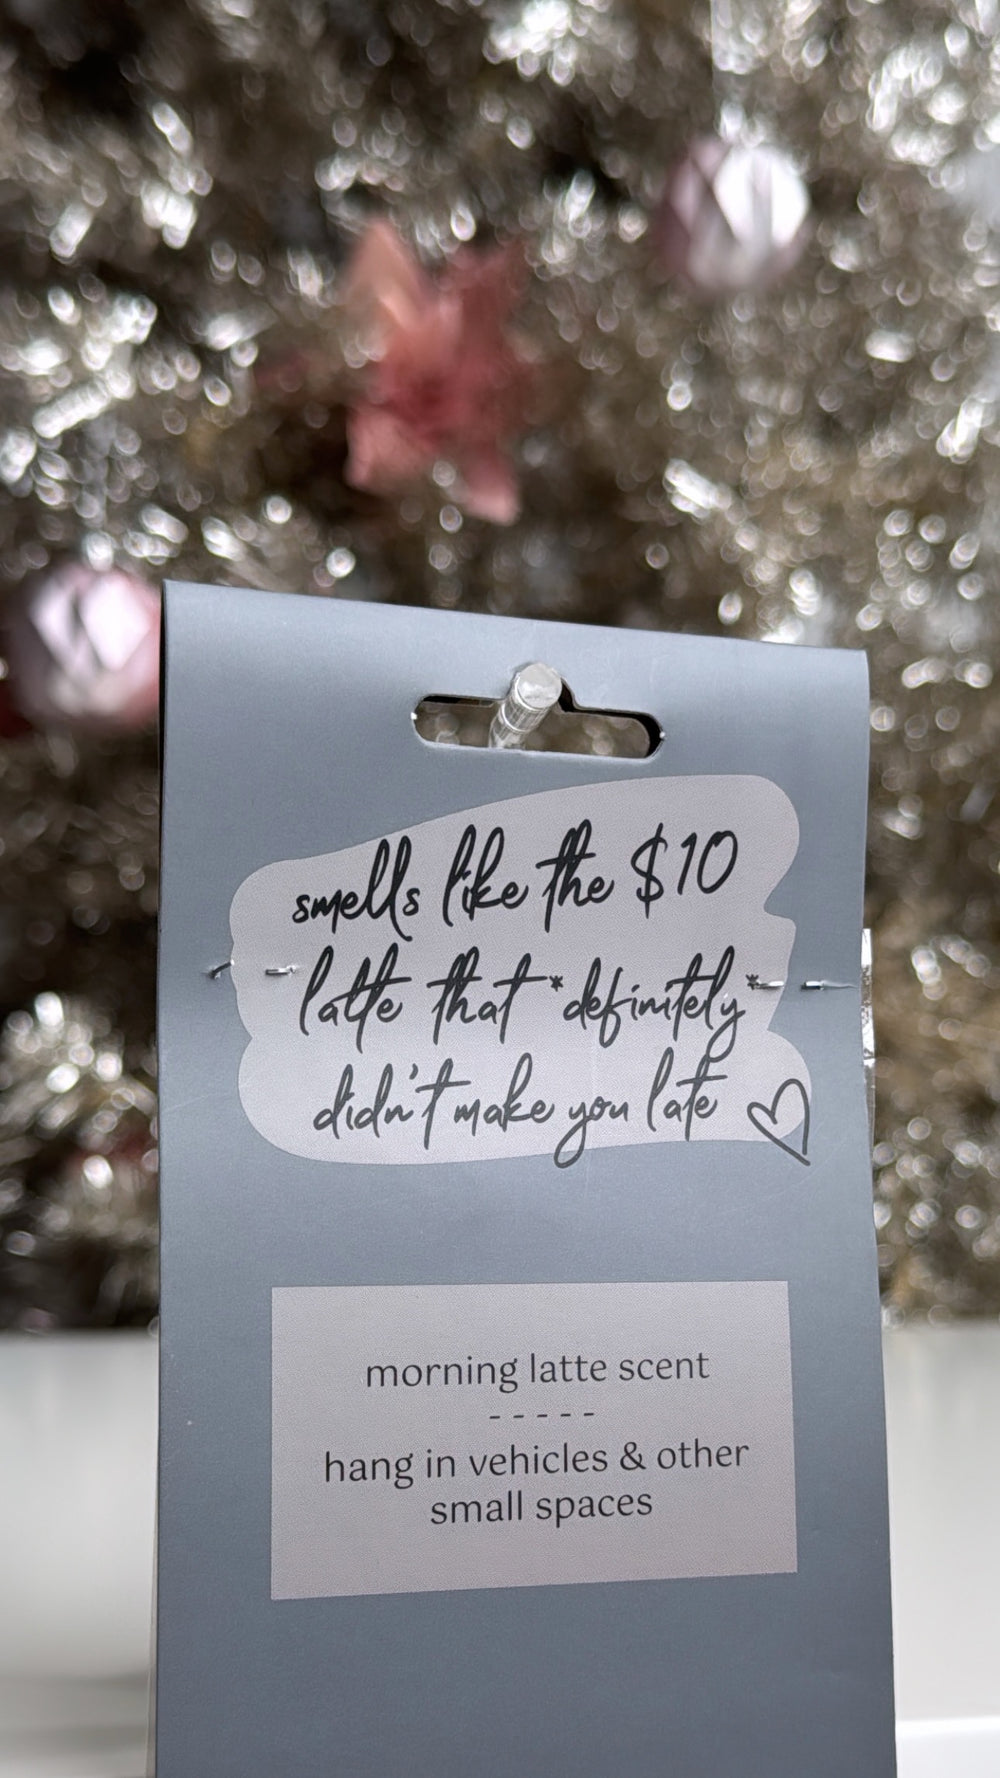 smells like the $10
latte that *definitely*
didn't make you late
morning latte scent
- - - - -
hang in vehicles & other
small spaces